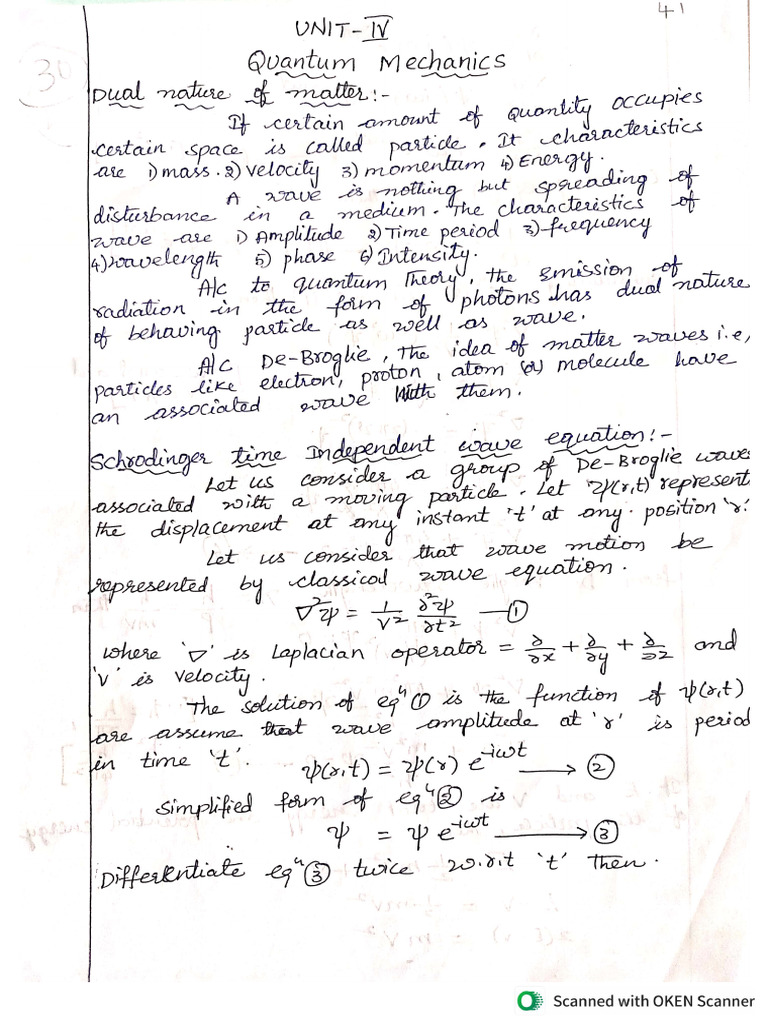 41
UNIT-IV
30
Quantum Mechanics
Dual nature of matter:-
If certain amount of quantity occupies
certain space is called particle. It characteristics
are 1) mass. 2) velocity 3) momentum 4) Energy.
A wave is nothing but spreading of
disturbance in a medium. The characteristics of
wave are 1) Amplitude 2) Time period 3) frequency
4) wavelength 5) phase 6) Intensity.
A/c to quantum Theory, the emission of
radiation in the form of photons has dual nature
of behaving particle as well as wave.
A/c De-Broglie, The idea of matter waves i.e,
particles like electron, proton, atom (or) molecule have
an associated wave with them.
Schrodinger time Independent wave equation:-
Let us consider a group of De-Broglie waves
associated with a moving particle. Let 'ψ(r,t) represent
the displacement at any instant 't' at any position 'r'.
Let us consider that wave motion be
represented by classical wave equation.
∇²ψ = 1/V² ∂²ψ/∂t² —①
where '∇' is Laplacian operator = ∂/∂x + ∂/∂y + ∂/∂z and
'v' is velocity.
The solution of eqⁿ ① is the function of ψ(r,t)
are assume that wave amplitude at 'r' is period
in time 't'.
ψ(r,t) = ψ(r) e^-iωt ⟶ ②
Simplified form of eqⁿ ② is
ψ = ψ e^-iωt ⟶ ③
Differentiate eqⁿ ③ twice w.r.t 't' then.
Scanned with OKEN Scanner